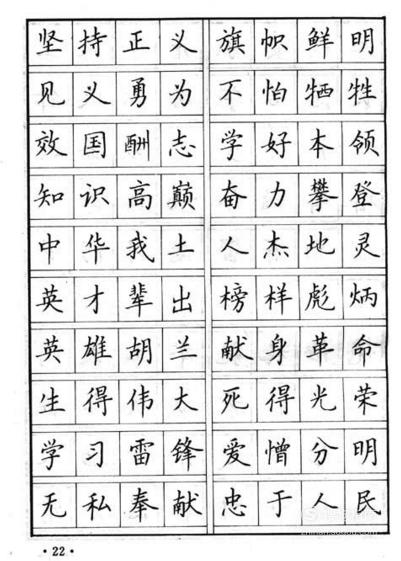 坚持正义 旗帜鲜明
见义勇为 不怕牺牲
效国酬志 学好本领
知识高巅 奋力攀登
中华我土 人杰地灵
英才辈出 榜样彪炳
英雄胡兰 献身革命
生得伟大 死得光荣
学习雷锋 爱憎分明
无私奉献 忠于人民
·22·